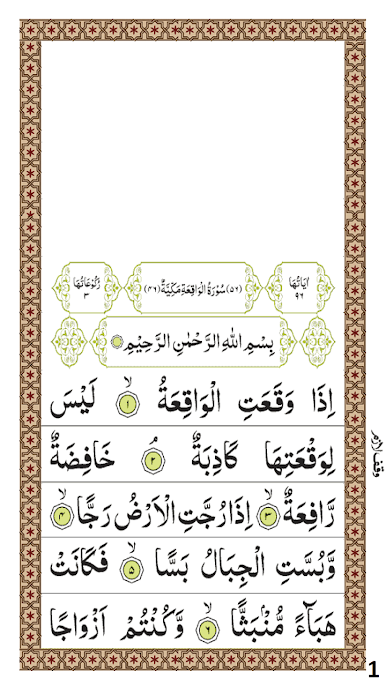 اٰيَاتُهَا ٩٦
(٥٦) سُوْرَةُ الْوَاقِعَةِ مَكِّيَّةٌ (٤٦)
رُكُوْعَاتُهَا ٣
بِسْمِ اللهِ الرَّحْمٰنِ الرَّحِيْمِ
اِذَا وَقَعَتِ الْوَاقِعَةُ ۙ ١ لَيْسَ
لِوَقْعَتِهَا كَاذِبَةٌ ۘ ٢ خَافِضَةٌ
رَّافِعَةٌ ۙ ٣ اِذَا رُجَّتِ الْاَرْضُ رَجًّا ۙ ٤
وَّبُسَّتِ الْجِبَالُ بَسًّا ۙ ٥ فَكَانَتْ
هَبَآءً مُّنْۢبَثًّا ۙ ٦ وَّكُنْتُمْ اَزْوَاجًا
1